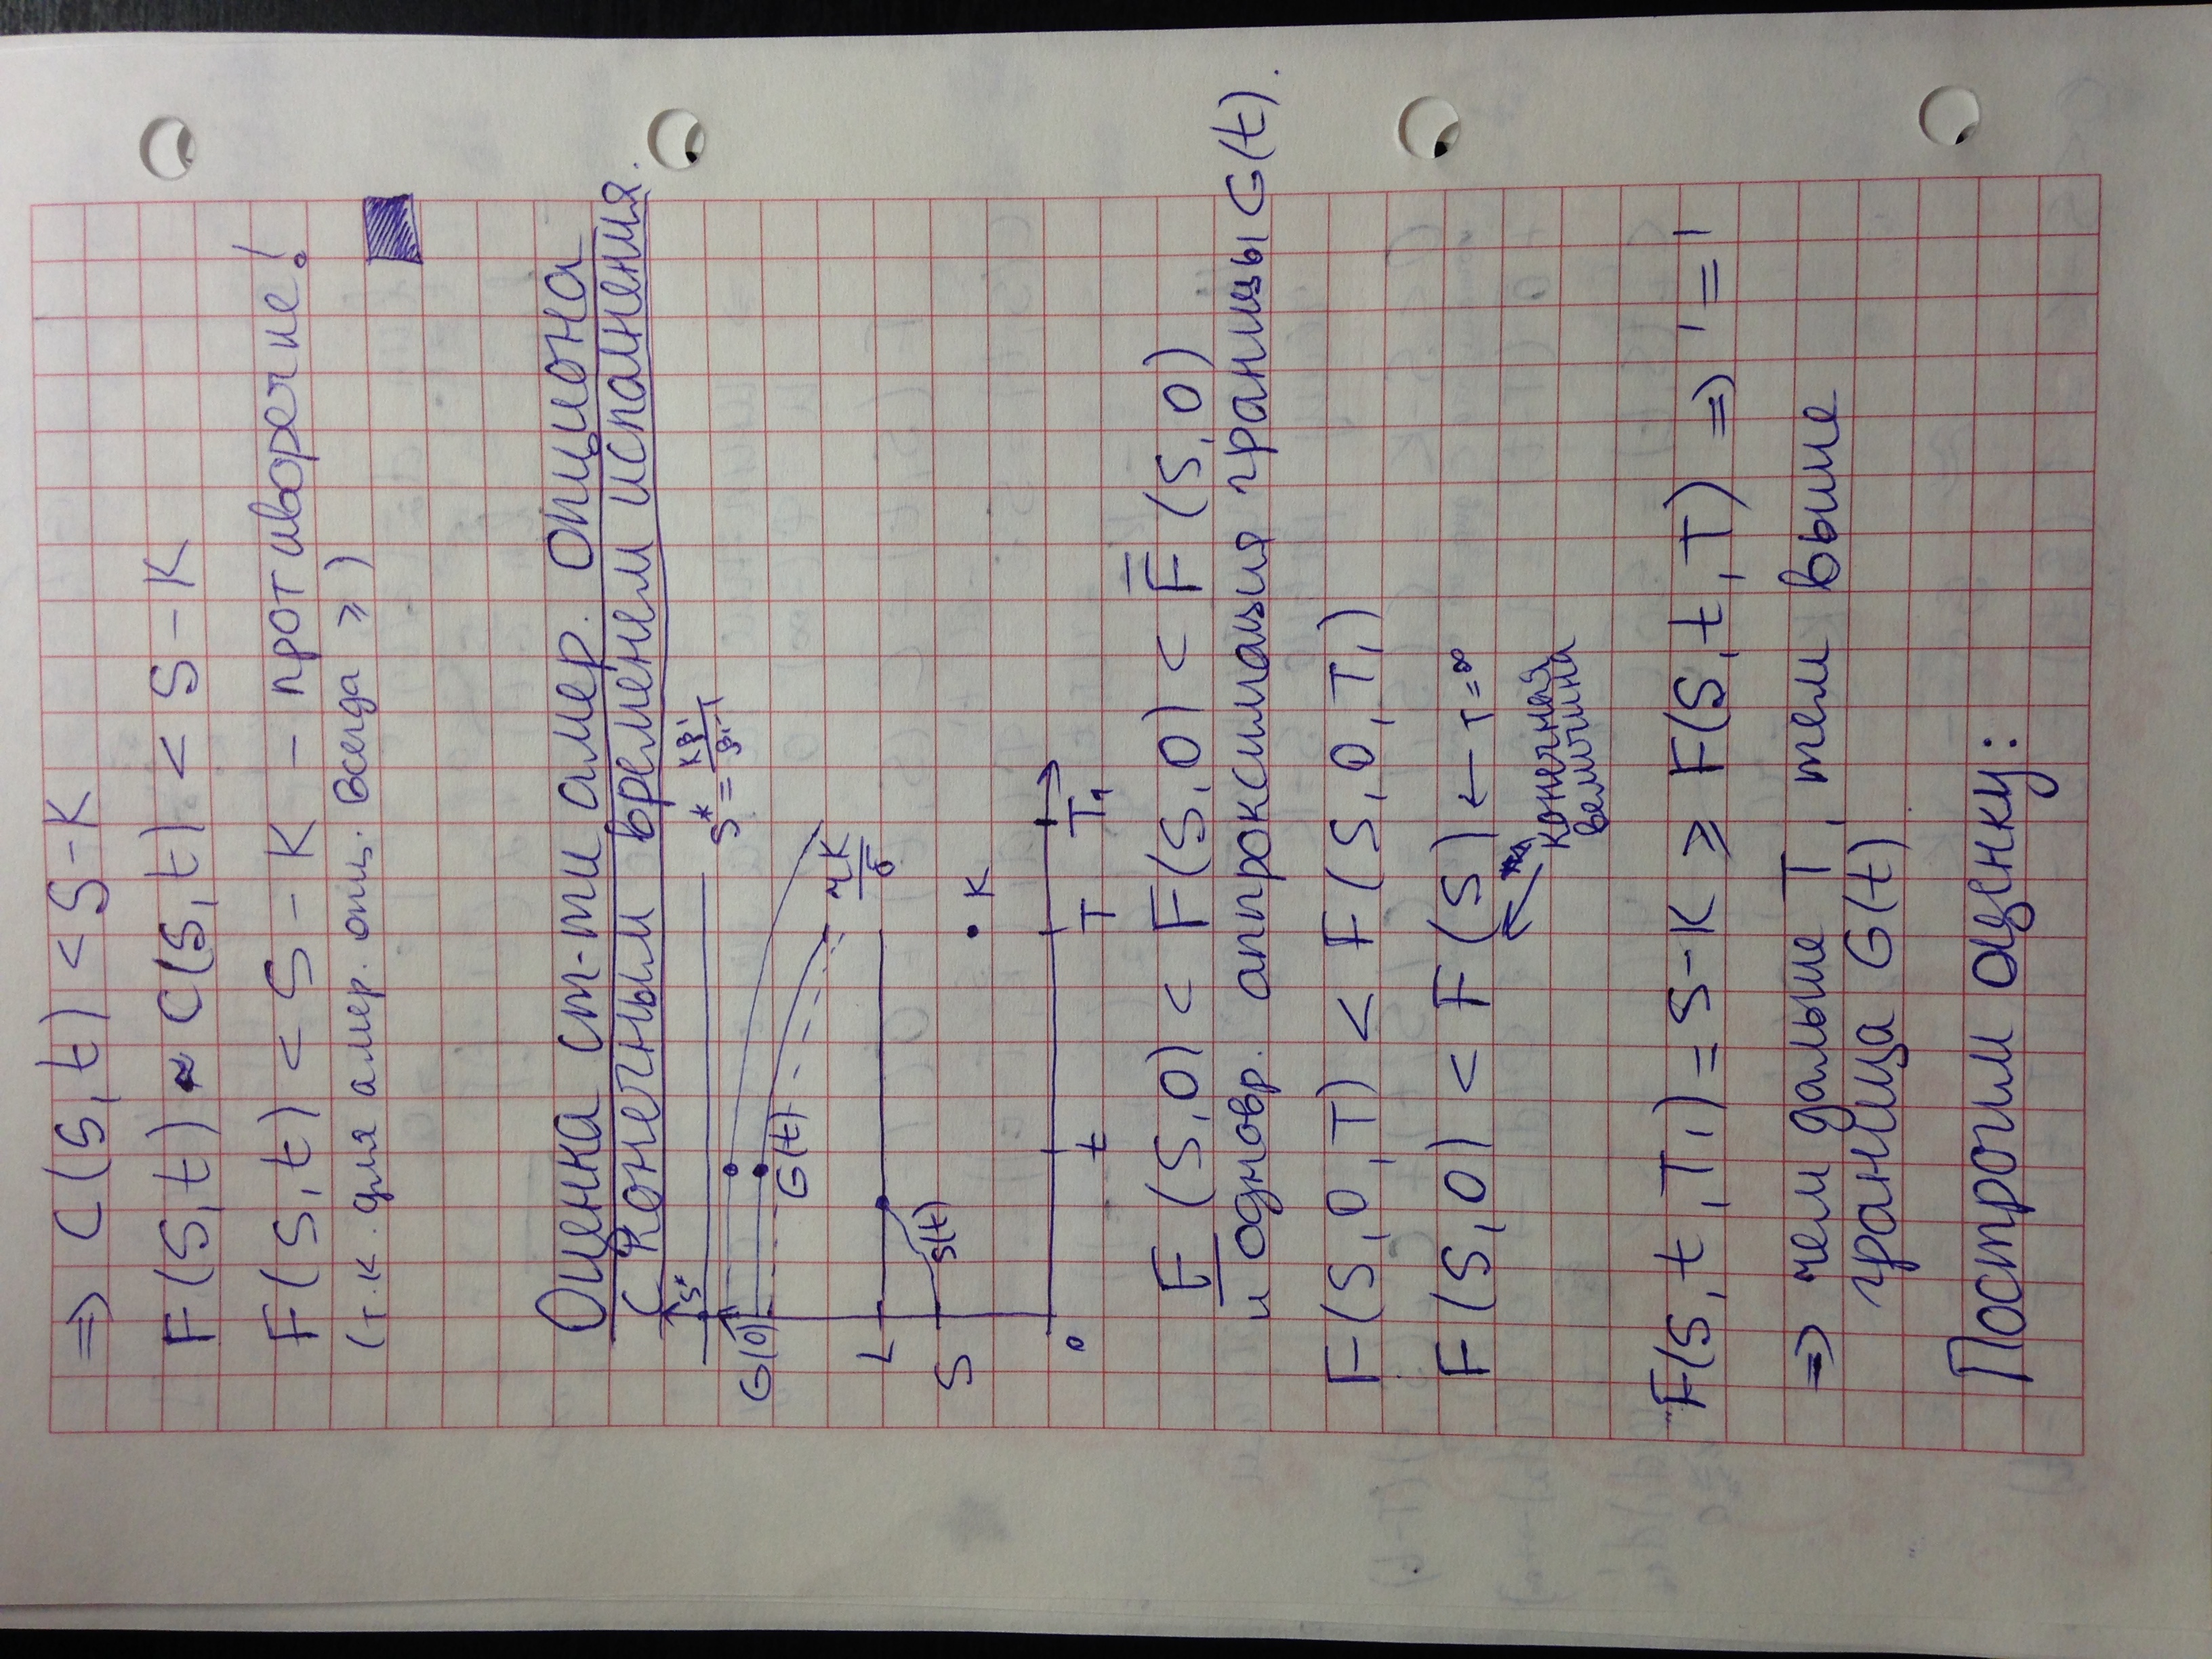 ⇒ C(S,t) < S-K
F(S,t) ~ C(S,t) < S-K
F(S,t) < S-K - противоречие!
(т.к. для амер. опц. всегда ≥)
Оценка ст-ти амер. опциона
с конечным временем исполнения.
S* S* = Kβ₁/β₁-1
G(0) G(t) rK/δ
L
S S(t) K
0 t T T₁
F̲(S,0) < F(S,0) < F̅(S,0)
и одновр. аппроксимация границы G(t).
F(S,0,T) < F(S,0,T₁)
F(S,0) < F(S) ← T=∞
конечная
величина
"F(S,t,T₁) = S-K ≥ F(S,t,T) ⇒ '='
⇒ чем дальше T, тем выше
граница G(t).
Построим оценку: